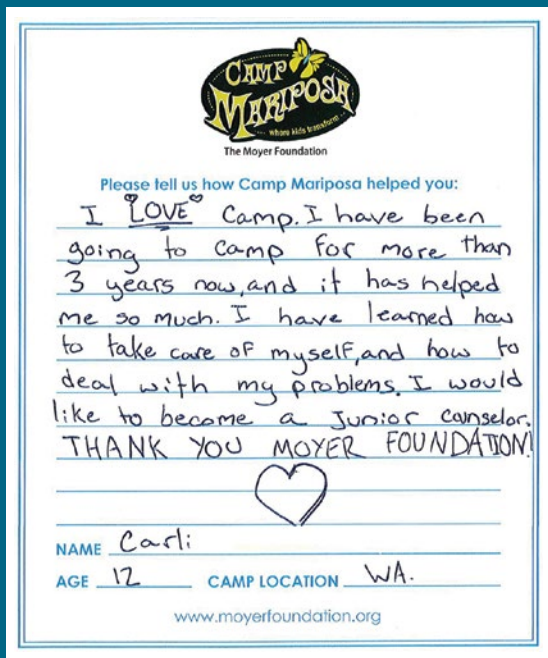 CAMP
MARIPOSA
where kids transform
The Moyer Foundation
Please tell us how Camp Mariposa helped you:
I LOVE Camp. I have been
going to camp for more than
3 years now, and it has helped
me so much. I have learned how
to take care of myself, and how to
deal with my problems. I would
like to become a Junior counselor.
THANK YOU MOYER FOUNDATION!
NAME Carli
AGE 12 CAMP LOCATION WA.
www.moyerfoundation.org